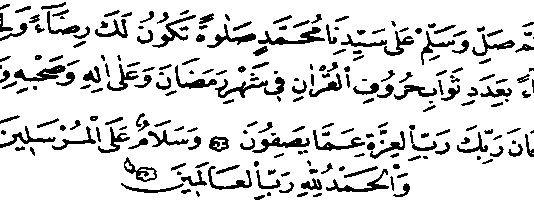 صَلِّ وَسَلِّمْ عَلٰى سَيِّدِنَا مُحَمَّدٍ صَلٰوةً تَكُونُ لَكَ رِضَٓاءً
بِعَدَدِ ثَوَابِ حُرُوفِ الْقُرْاٰنِ فِى شَهْرِ رَمَضَانَ وَعَلٰى اٰلِهِ وَصَحْبِهِ
رَبِّكَ رَبِّ الْعِزَّةِ عَمَّا يَصِفُونَ وَسَلَامٌ عَلَى الْمُرْسَلِينَ
وَالْحَمْدُ لِلّٰهِ رَبِّ الْعَالَمِينَ